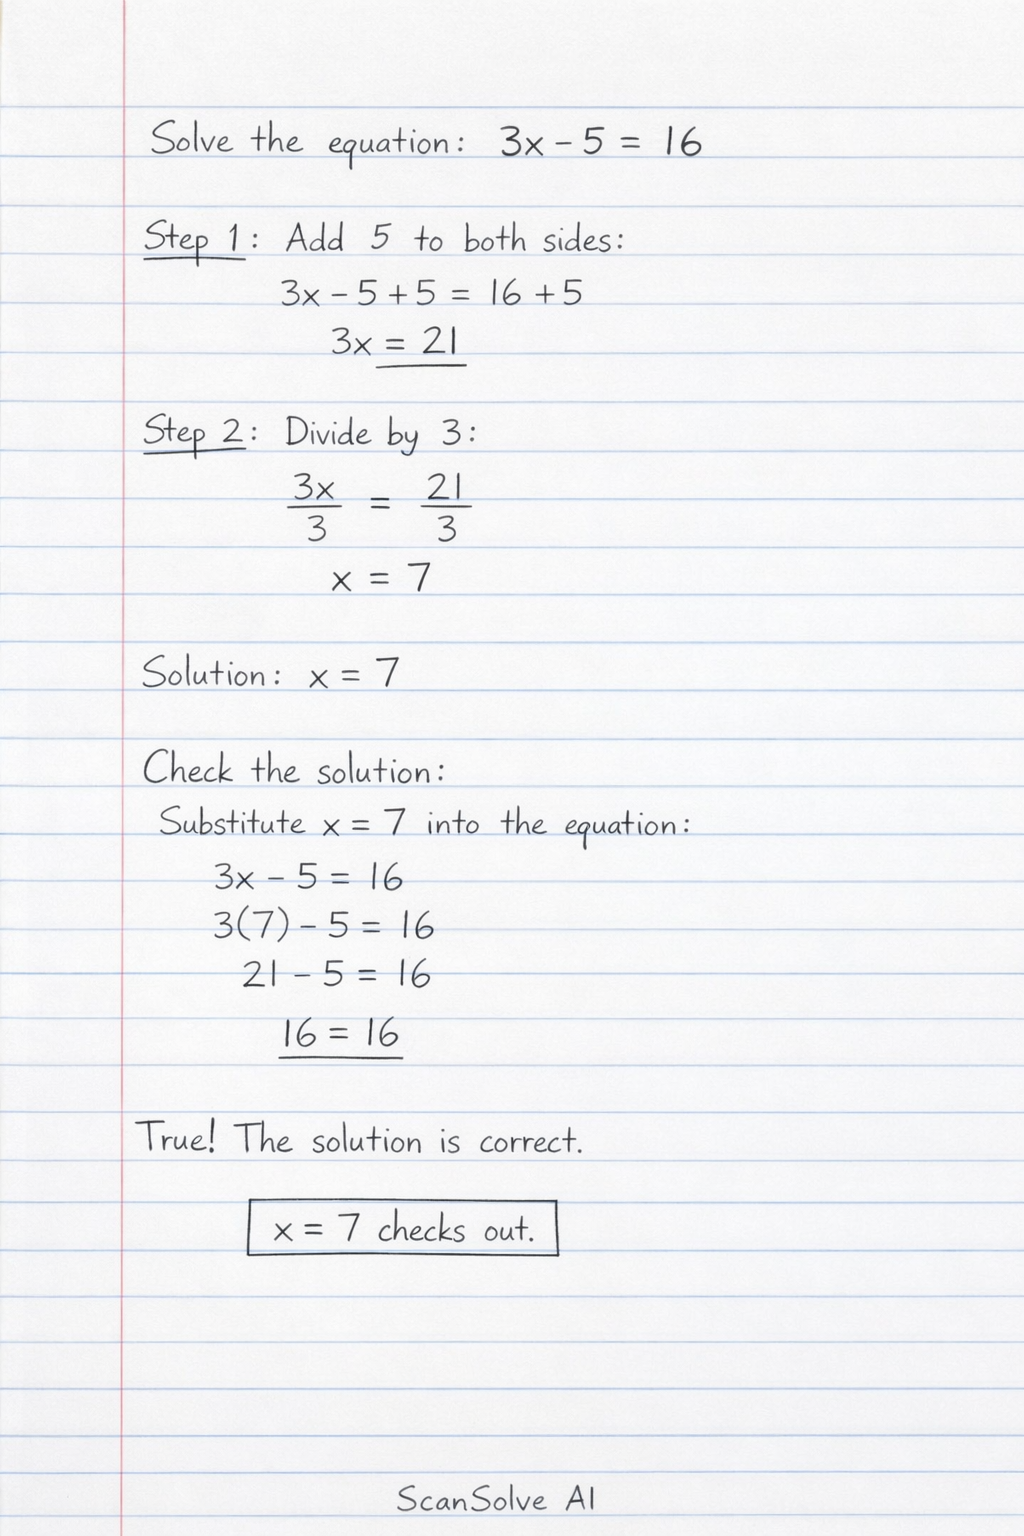 Solve the equation: 3x - 5 = 16
Step 1: Add 5 to both sides:
3x - 5 + 5 = 16 + 5
3x = 21
Step 2: Divide by 3:
3x/3 = 21/3
x = 7
Solution: x = 7
Check the solution:
Substitute x = 7 into the equation:
3x - 5 = 16
3(7) - 5 = 16
21 - 5 = 16
16 = 16
True! The solution is correct.
x = 7 checks out.
ScanSolve AI